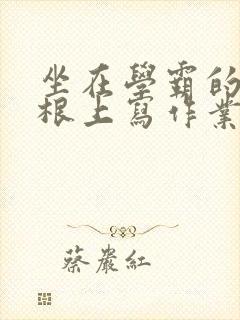 坐在學霸的
根上寫作業
蔡嚴紅